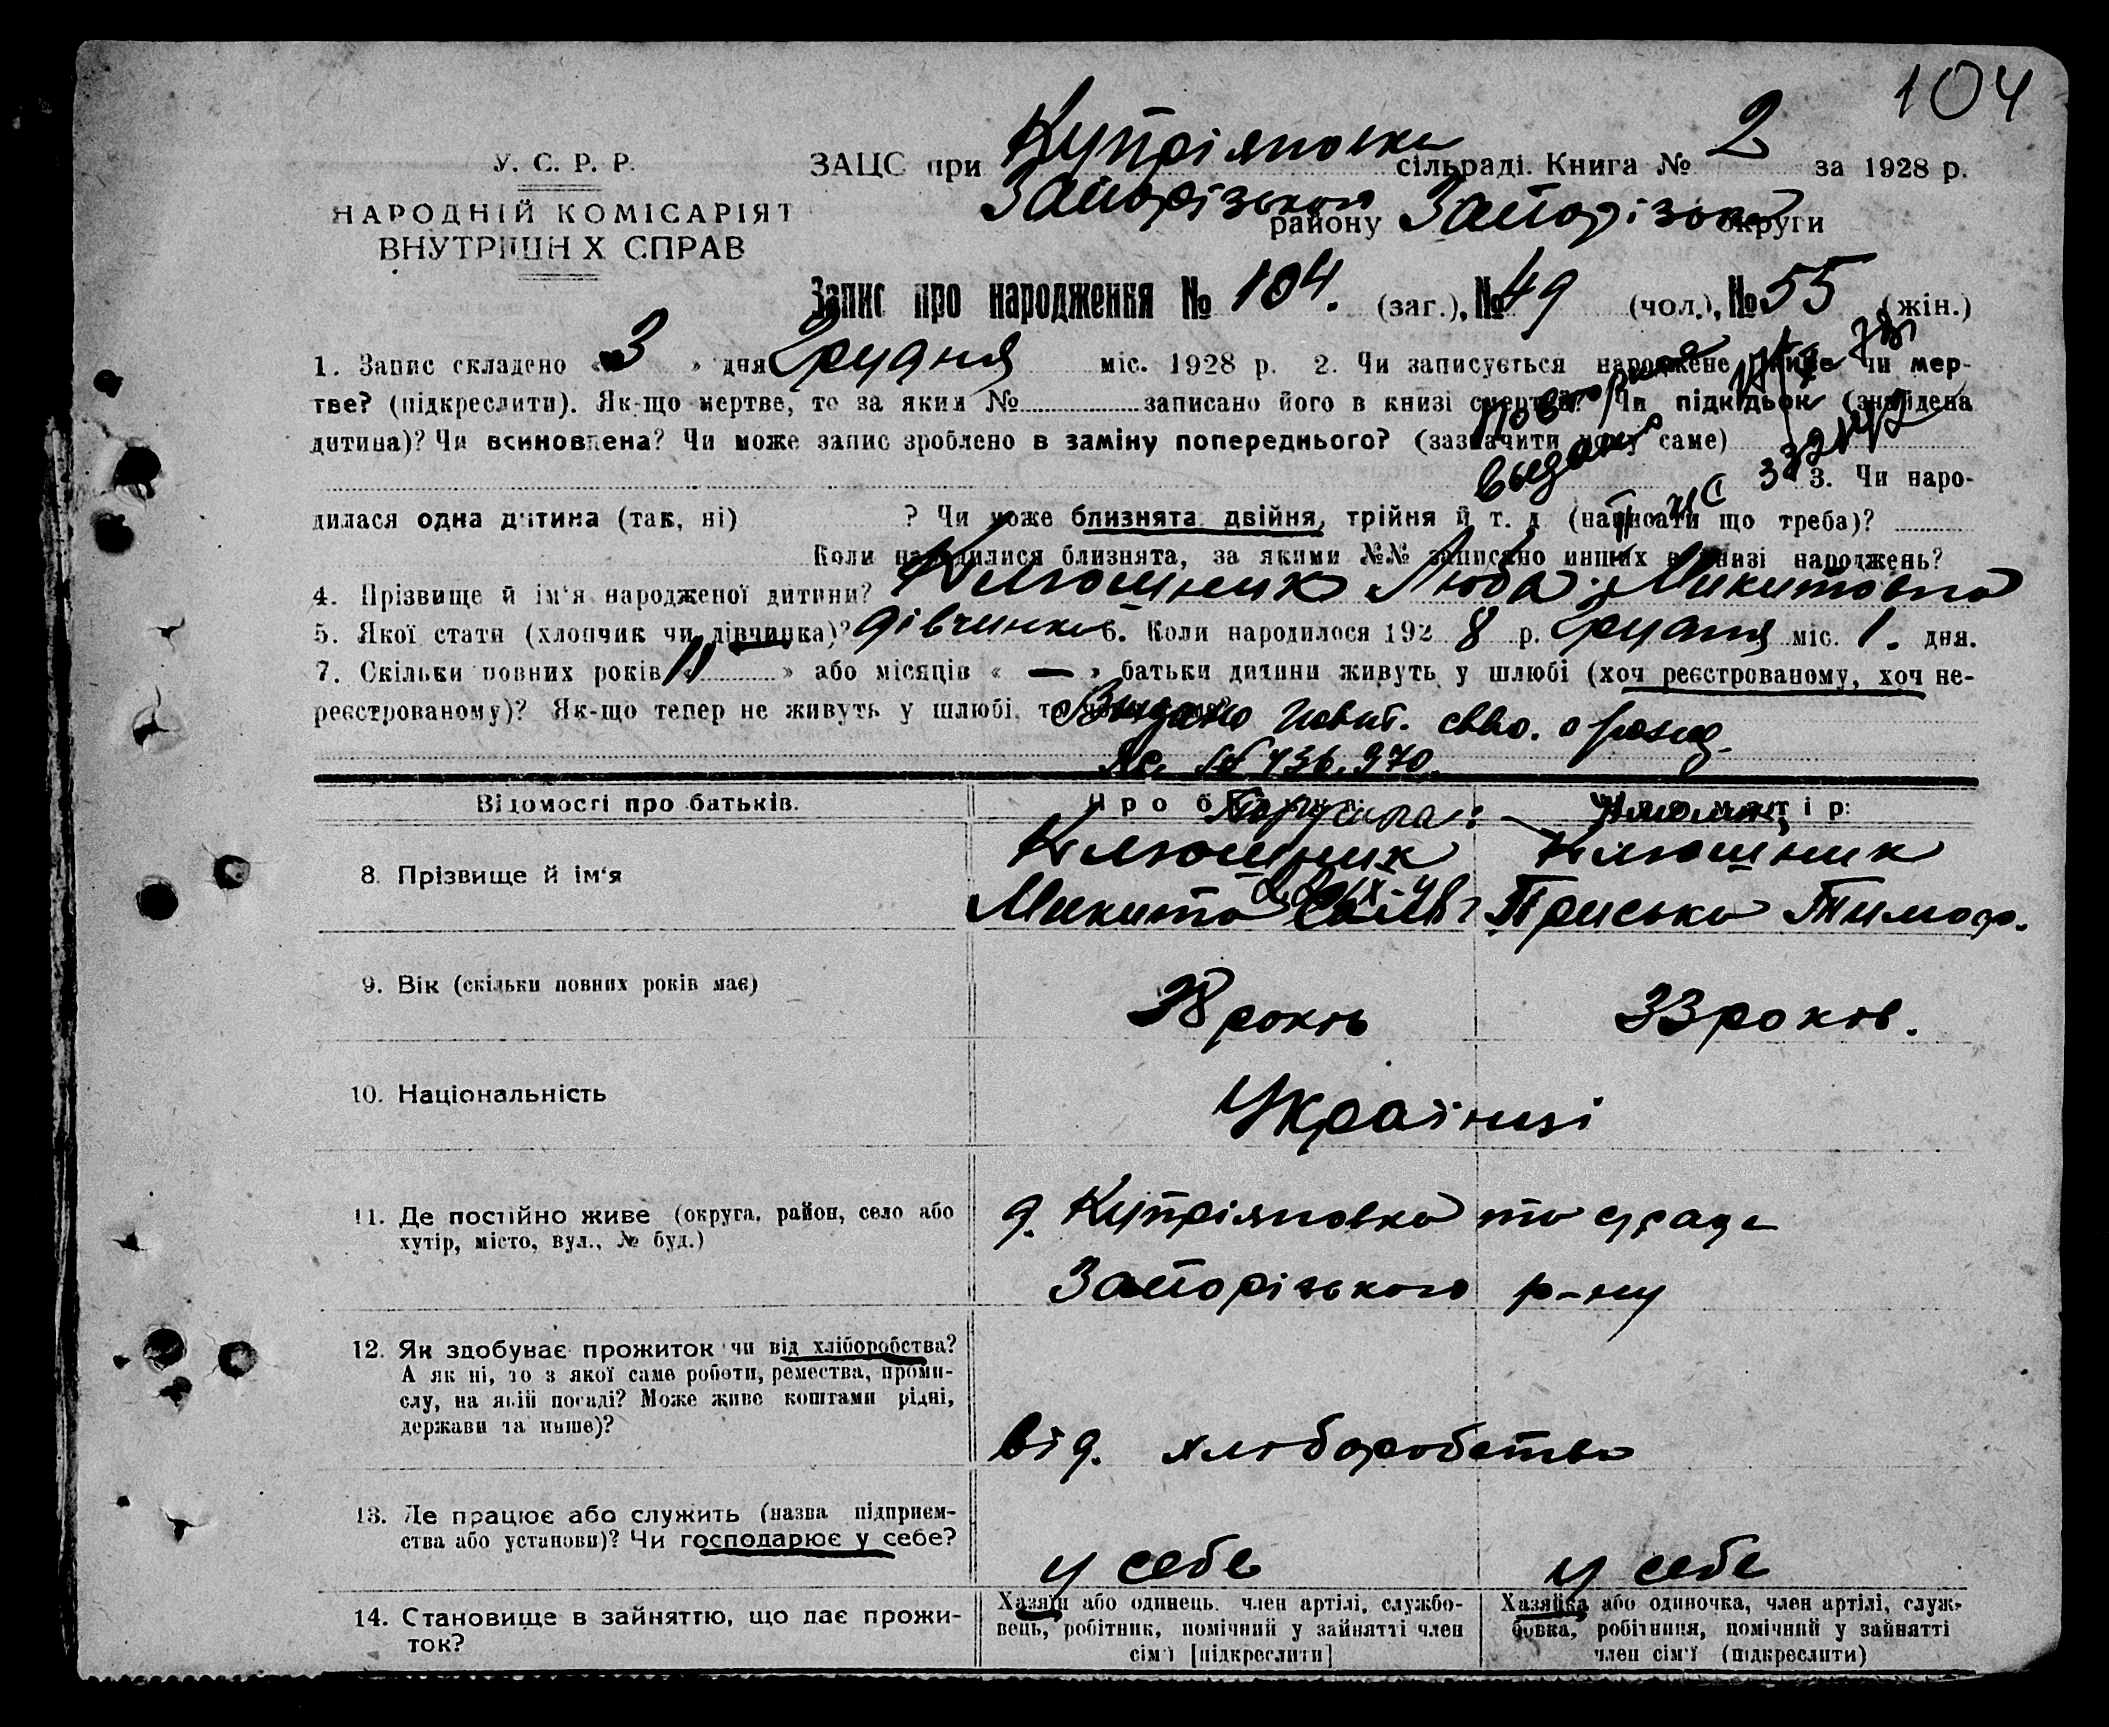 104
У. С. Р. Р.
НАРОДНІЙ КОМІСАРІЯТ
ВНУТРІШН Х СПРАВ
ЗАЦС при Купріяновка сільраді. Книга № 2 за 1928 р.
Запорізького району Запорізької округи
Запис про народження № 104. (заг.), № 49 (чол.), № 55 (жін.)
1. Запис складено « 3 » дня Грудня міс. 1928 р. 2. Чи записується народжене живе чи мер-
тве? (підкреслити). Як-що мертве, то за яким № записано його в книзі смертей? Чи підкідьок (знайдена
дитина)? Чи всиновлена? Чи може запис зроблено в заміну попереднього? (зазначити чому саме)
повторная
выдано
3. Чи наро-
дилася одна дитина (так, ні) ? Чи може близнята, двійня, трійня й т. д (написати що треба)?
Коли народилися близнята, за якими №№ записано инших в книзі народжень?
4. Прізвище й ім'я народженої дитини? Клюшник Люба Микитовна
5. Якої стати (хлопчик чи дівчинка)? дівчинка 6. Коли народилося 192 8 р. Грудня міс. 1. дня.
7. Скільки повних років « 11 » або місяців « — » батьки дитини живуть у шлюбі (хоч реєстрованому, хоч не-
реєстрованому)? Як-що тепер не живуть у шлюбі, то
Выдано повт. свво. о рожд.
436.970
Відомості про батьків.
Про батька:
Про матір:
8. Прізвище й ім'я
Клюшник
Микита Сам
Клюшник
Приська Тимоф.
9. Вік (скільки повних років має)
38 років
33 років.
10. Національність
Українці
11. Де постійно живе (округа, район, село або
хутір, місто, вул., № буд.)
д. Купріяновка
Запорізького р-ну
12. Як здобуває прожиток чи від хліборобства?
А як ні, то з якої саме роботи, ремества, проми-
слу, на якій посаді? Може живе коштами рідні,
держави та инше)?
від. хліборобства
13. Де працює або служить (назва підприєм-
ства або установи)? Чи господарює у себе?
у себе
у себе
14. Становище в зайняттю, що дає прожи-
ток?
Хазяїн або одинець. член артілі, службо-
вець, робітник, помічний у зайнятті член
сім'ї [підкреслити]
Хазяйка або одиночка, член артілі, служ-
бовка, робітниця, помічний у зайнятті
член сім'ї (підкреслити)